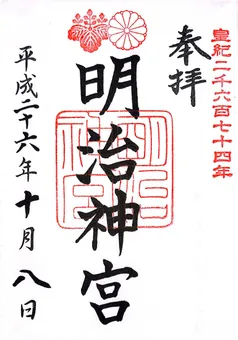 皇紀二千六百七十四年
奉拝
明治神宮
平成二十六年十月八日
明治神宮